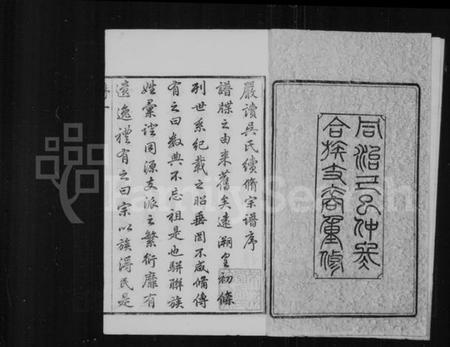 同治五年仲冬
合族支裔重修
嚴瀆吳氏續脩宗譜序
譜牒之由來舊矣遠溯皇初條
列世系紀載之昭垂罔不咸備傳
有之曰數典不忘祖是也聯族
姓彙證同源支派之繁衍靡有
遠逸禮有之曰宗以族得民是